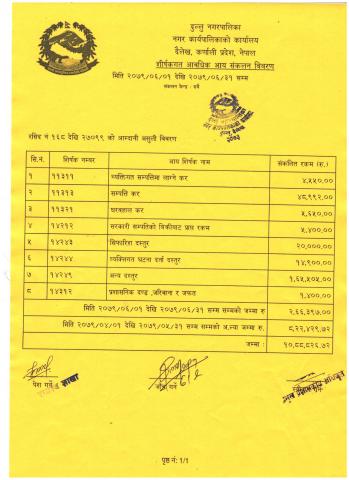 दुल्लु नगरपालिका
नगर कार्यपालिकाको कार्यालय
दैलेख, कर्णाली प्रदेश, नेपाल
शीर्षकगत आवधिक आय संकलन विवरण
मिति २०७९/०६/०१ देखि २०७९/०६/३१ सम्म
संकलन केन्द्र : सबै
रसिद नं १६८ देखि २७०९९ को आम्दानी असुली विवरण
सि.नं. शीर्षक नम्बर आय शीर्षक नाम संकलित रकम (रु.)
१ ११३११ व्यक्तिगत सम्पत्तिमा लाग्ने कर ४,५५०.००
२ ११३१३ सम्पति कर ४८,९९२.००
३ ११३२१ घरवहाल कर ५,६५०.००
४ १४२१२ सरकारी सम्पतिको बिक्रीबाट प्राप्त रकम ५,४००.००
५ १४२४३ सिफारिश दस्तुर २०,०००.००
६ १४२४४ व्यक्तिगत घटना दर्ता दस्तुर १४,९००.००
७ १४२४९ अन्य दस्तुर १,६५,५०५.००
८ १४३१२ प्रशासनिक दण्ड ,जरिवाना र जफत १,४००.००
मिति २०७९/०६/०१ देखि २०७९/०६/३१ सम्म सम्मको जम्मा रु २,६६,३९७.००
मिति २०७९/०४/०१ देखि २०७९/०५/३१ सम्म सम्मको अ.ल्या जम्मा रु. ८,२२,४२९.७२
जम्मा : १०,८८,८२६.७२
पेश गर्ने
शाखा
जाँच गर्ने
पृष्ठ नं: 1/1